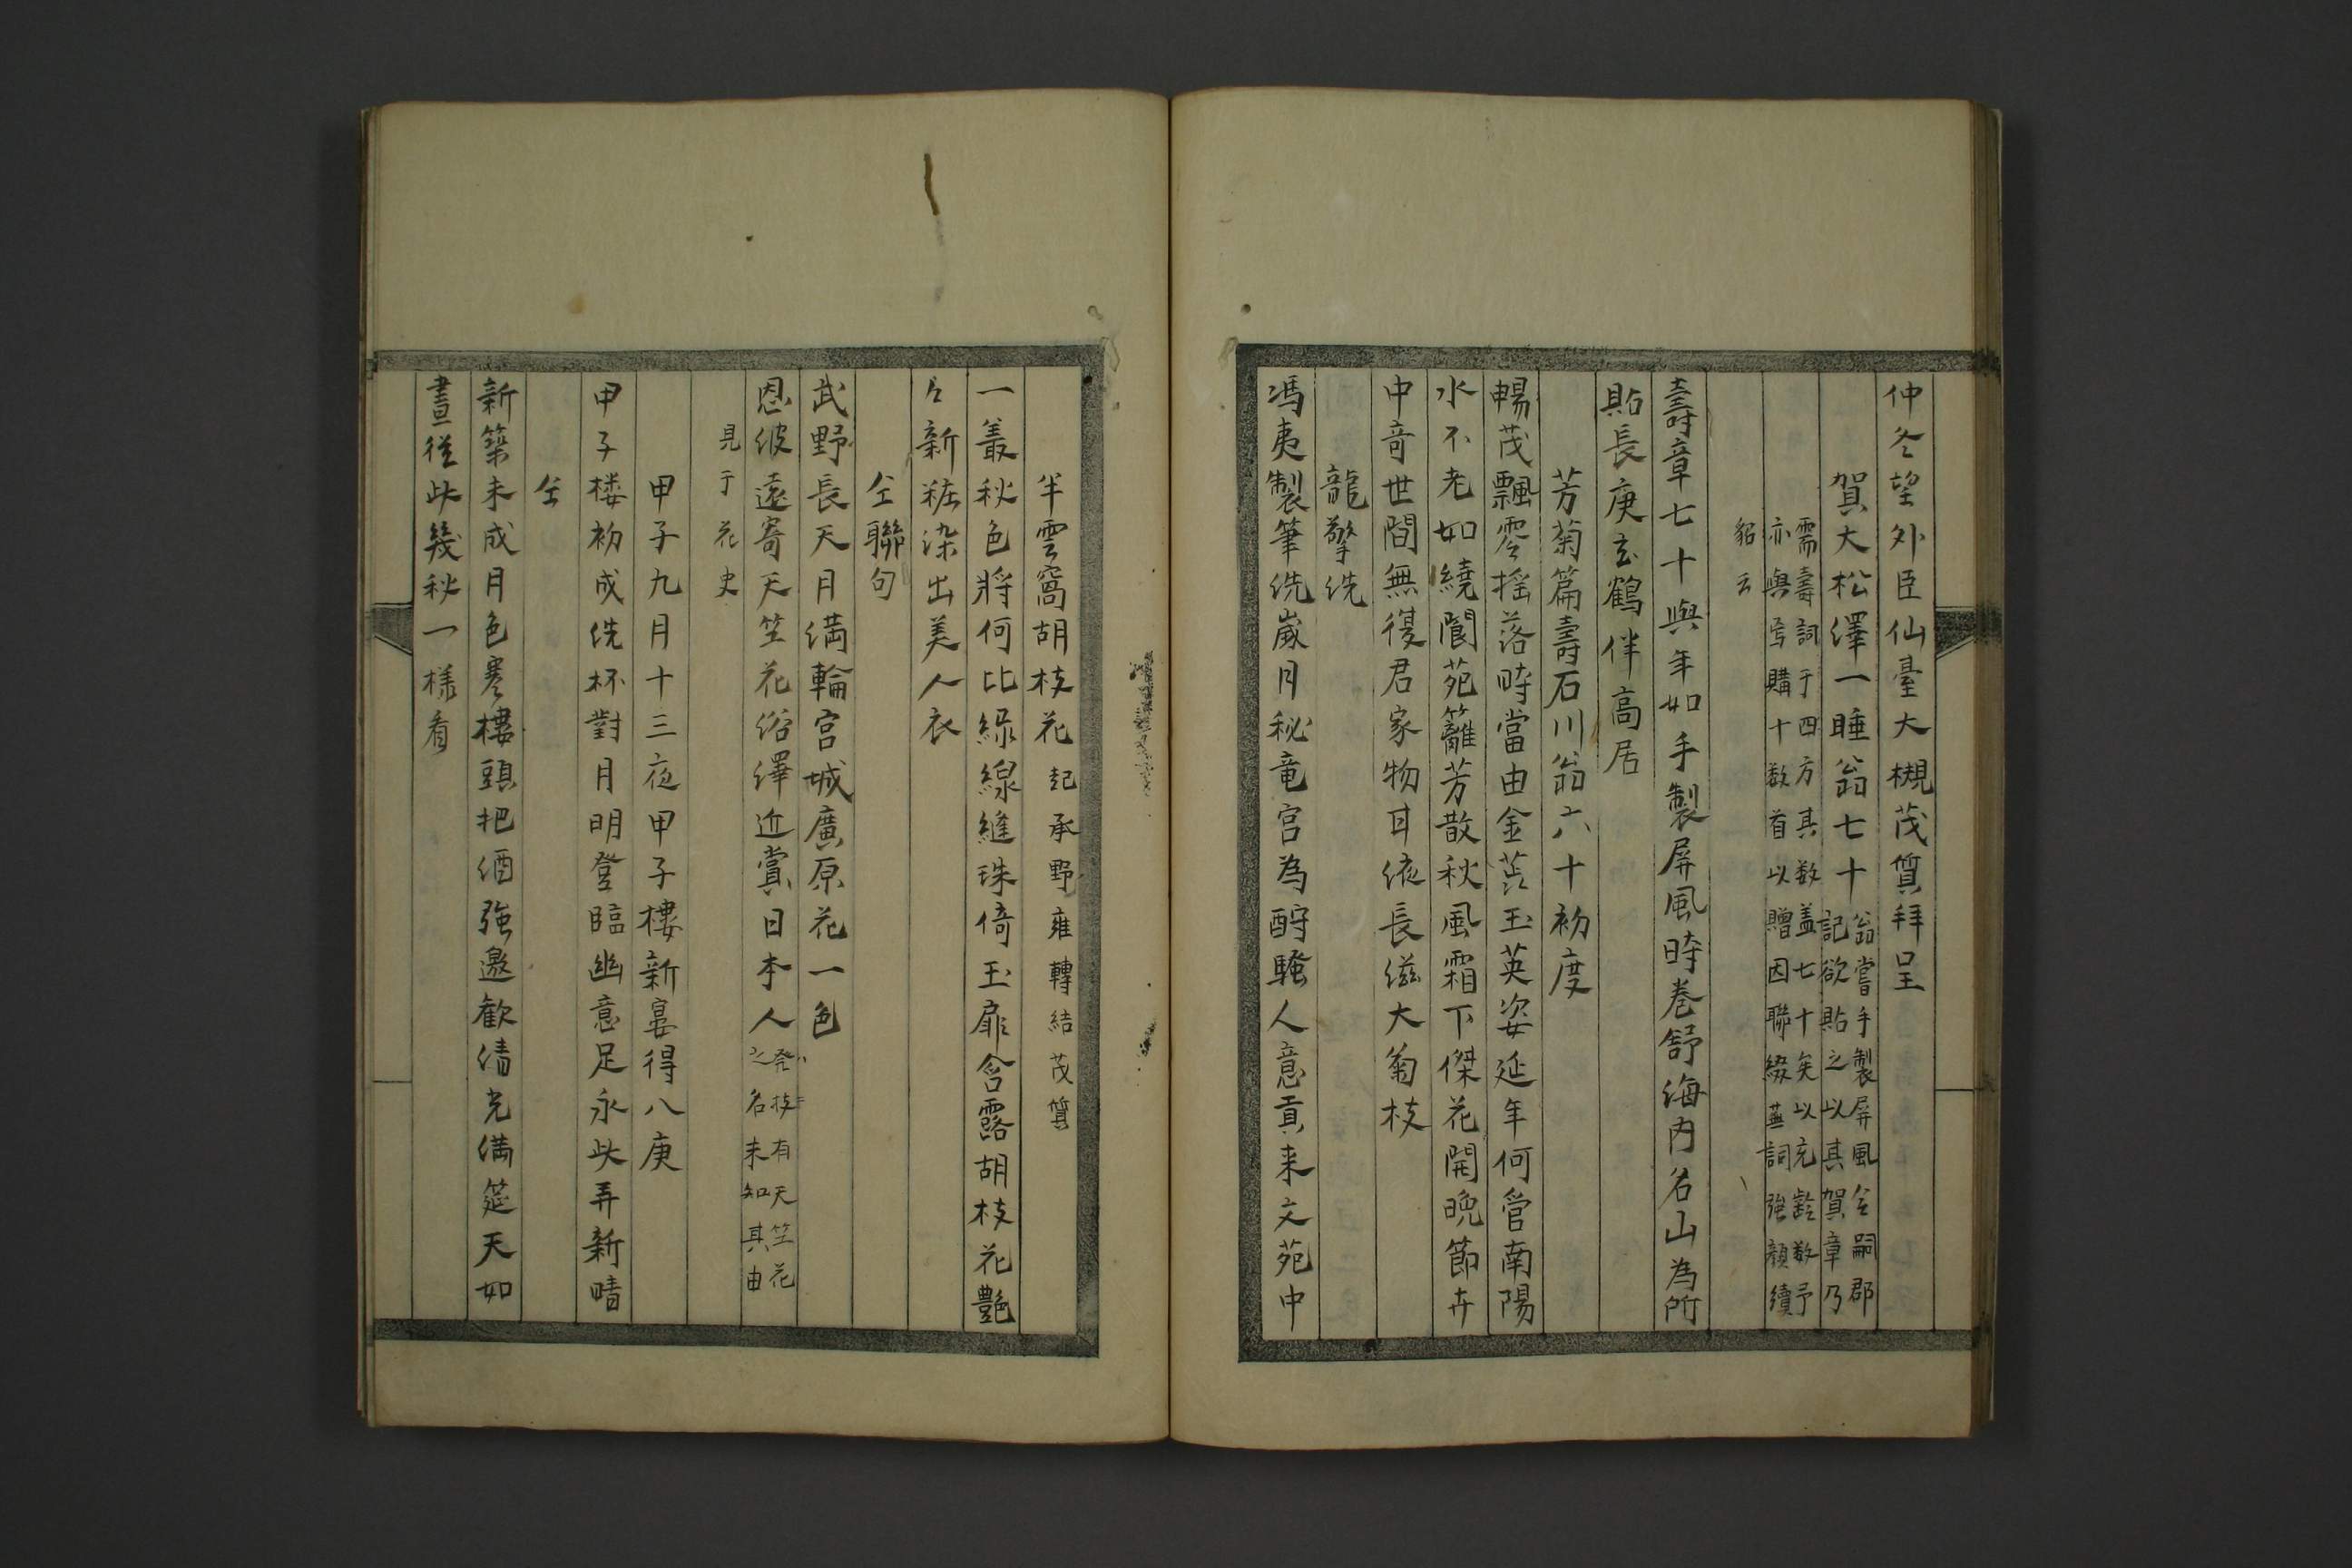 仲冬望外臣仙臺大槻茂質拜呈
賀大松澤一睡翁七十翁嘗手製屏風仝嗣郡
記欲貼之以其賀章乃
需壽詞于四方其数盖七十矣以充齡数予
亦與焉購十数首以贈因聯綴蕪詞強顔續
貂云
壽章七十與年如手製屏風時卷舒海內名山為所
貽長庚玄鶴伴高居
芳菊篇壽石川翁六十初度
暢茂飄零揺落時當由金蕋玉英姿延年何啻南陽
水不老如繞閬苑籬芳散秋風霜下傑花開晚節卉
中奇世間無復君家物耳依長滋大菊枝
龍擎洗
馮夷製筆洗嵗月秘竜宮為酹騷人意貢来文苑中
半雲窩胡枝花起承野雍轉結茂質
一叢秋色將何比緑線縫珠倚玉扉含露胡枝花艶
々新粧染出美人衣
仝聯句
武野長天月満輪宮城廣原花一色
恩波遠寄天竺花俗繹近賞日本人発枝有天竺花
之名未知其由
見于花史
甲子九月十三夜甲子樓新宴得八庚
甲子楼初成洗杯對月明登臨幽意足永此弄新晴
仝
新築未成月色寒樓頭把酒強邀歓清光満筵天如
晝從此幾秋一様看